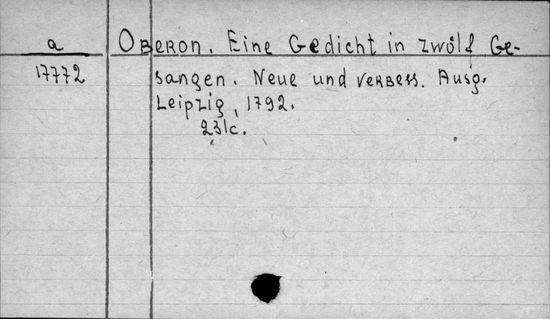 a
17772
Oberon. Eine Gedicht in zwölf Ge-
sangen. Neue und verbess. Ausg.
Leipzig, 1792.
231c.